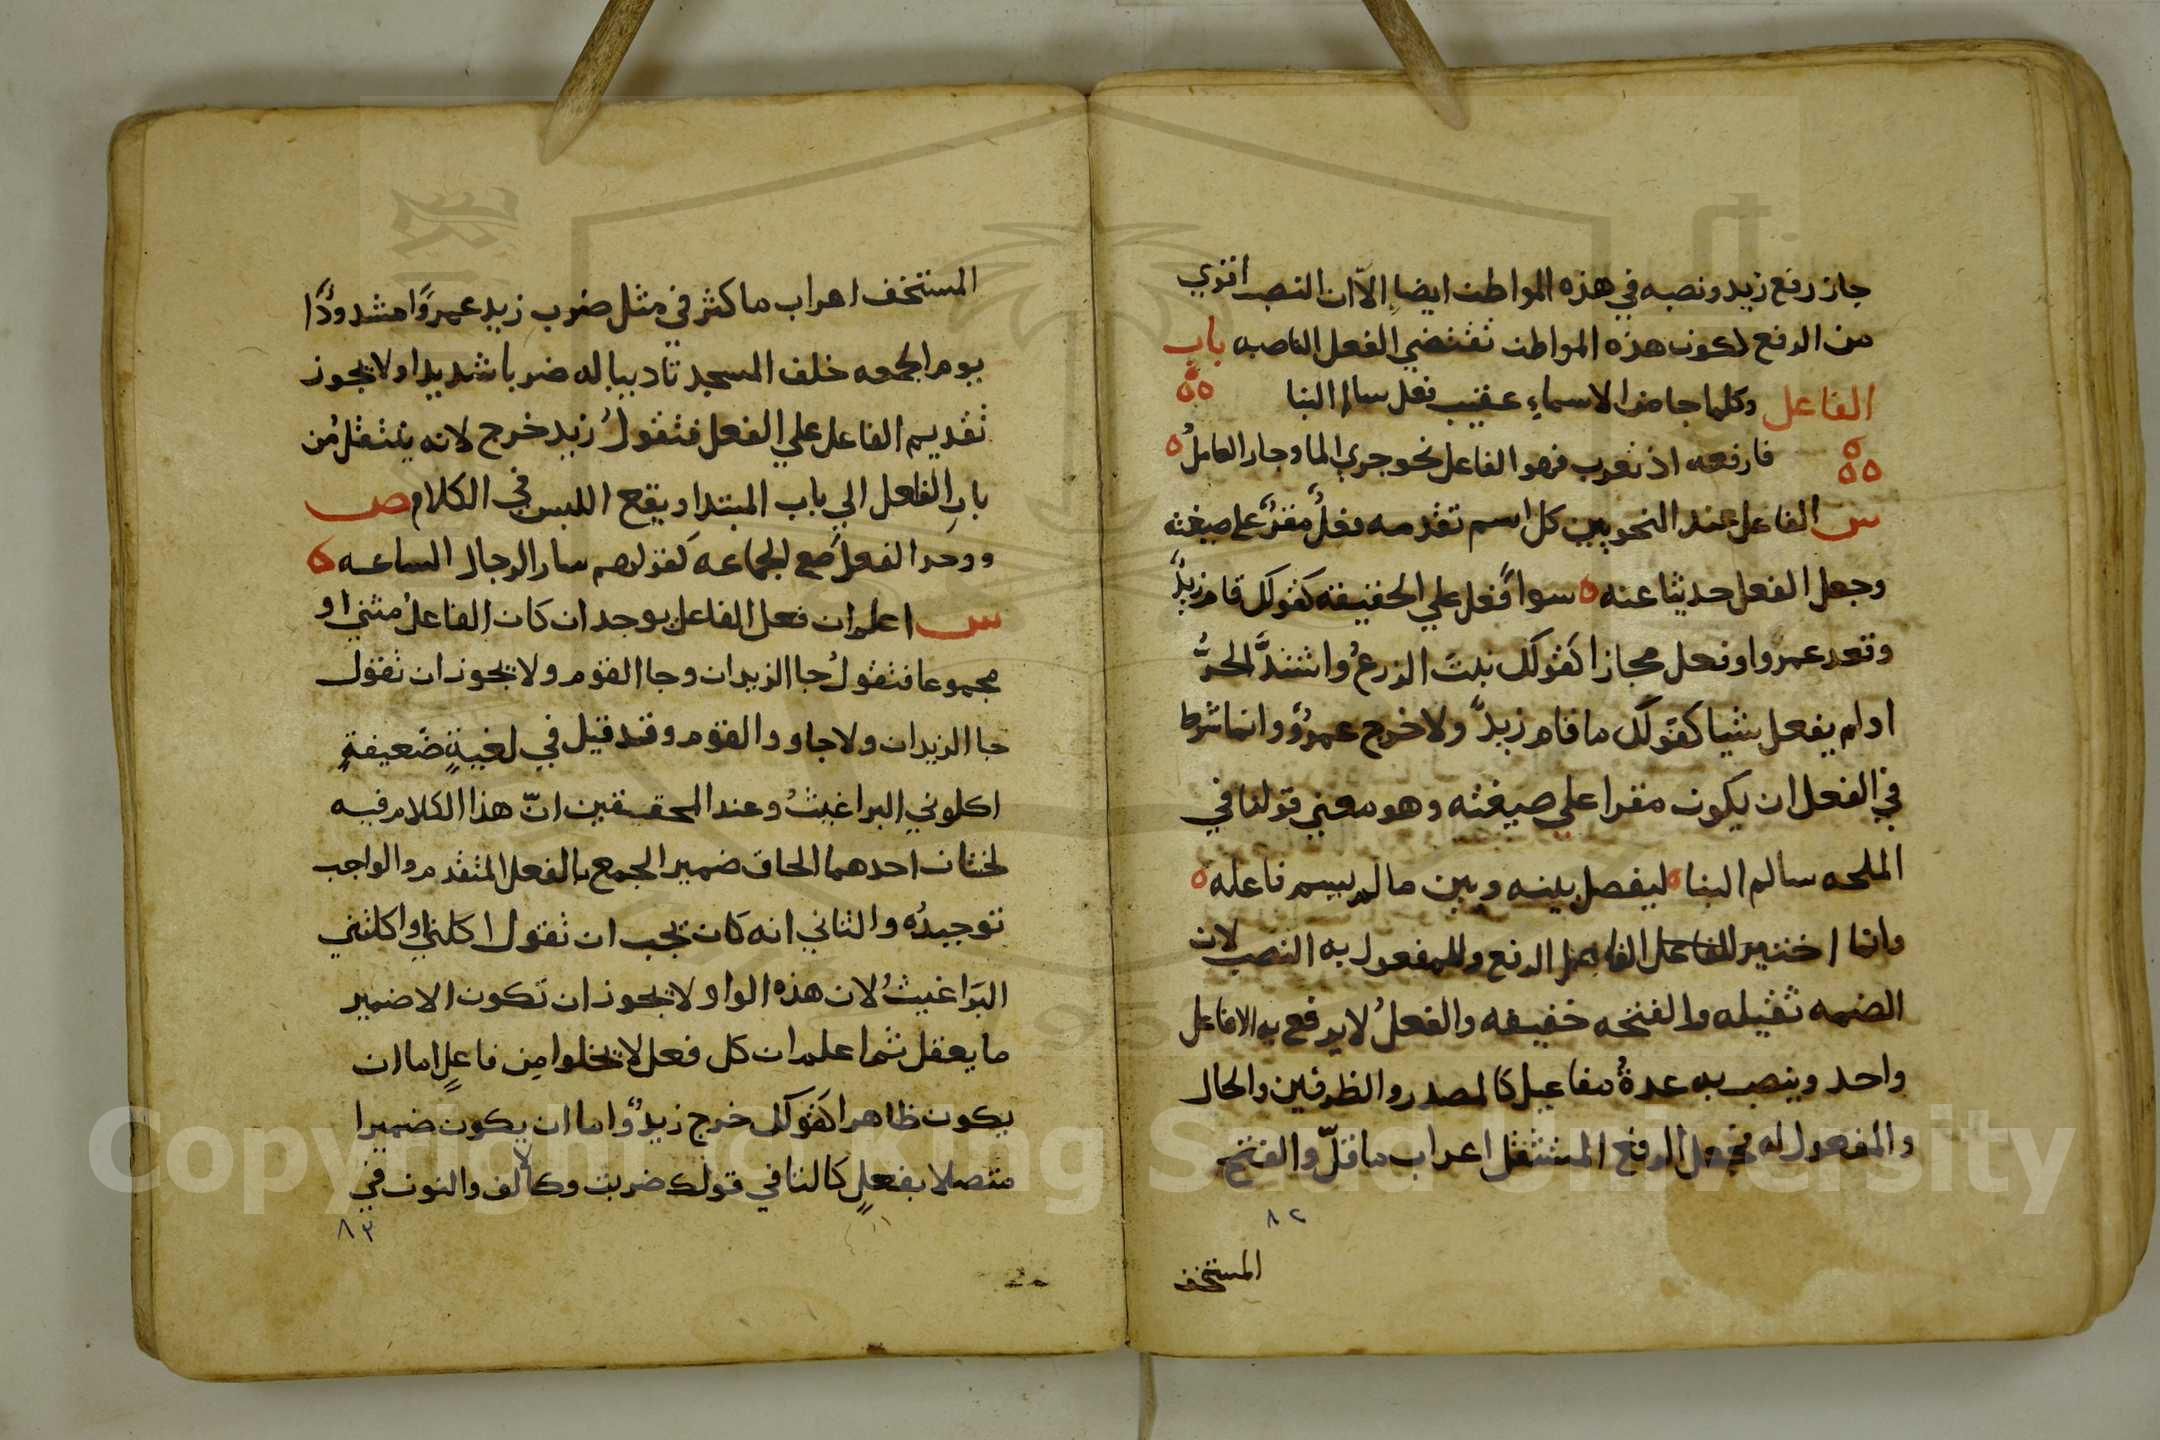 جاز رفع زيد ونصبه في هذه المواطن ايضا إلاّ ان النصب اقوي
من الرفع لكون هذه المواطن تقتضي الفعل الناصبه باب
الفاعل وكلما جا من الاسماءِ عقيب فعل سالم البنا
فارفعه اذ تعرب فهو الفاعل نحو جري الما وجار العاملُ ه
س الفاعل عند النحويين كل اسم تقدمه فعلٌ مقرٌ علي صيغته
وجعل الفعل حديثا عنه ه سوآ فعل علي الحقيقه كقولك قام زيدٌ
وقعد عمرو او فعل مجازا كقولك نبتَ الزرعُ واشتدَّ الحرُّ
اولم يفعل شيا كقولك ما قام زيدٌ ولا خرج عمروٌ وانما شرط
في الفعل ان يكون مقرا علي صيغته وهو معني قولنا في
الملحه سالم البنا ه ليفصل بينه وبين ما لم يسم فاعله ه
وانما اختير الرفع وللمفعول به النصب لان
الضمه ثقيله والفتحه خفيفه والفعلُ لا يرفع به الا فاعل
واحد وينصب به عدةُ مفاعيل كالمصدر والظرفين والحال
والمفعول له فجعل الرفع المستثقل اعراب ما قلّ والفتح
٨٢
المستخف
المستخف اعراب ما كثر في مثل ضرب زيد عمروًا مشدودًا
يوم الجمعه خلف المسجد تاديبا له ضربا شديدا ولا يجوز
تقديم الفاعل علي الفعل فتقولُ زيد خرج لانه ينتقلُ من
باب الفاعل الي باب المبتدا ويقع اللبس في الكلام ص
ووحد الفعل مع الجماعه كقولهم سار الرجال الساعه ه
س اعلم ان فعل الفاعل يوحد ان كان الفاعلُ مثني او
مجموعا فتقولُ جا الزيدان وجا القوم ولا يجوز ان تقول
جاا الزيدان ولا جاوو القوم وقد قيل في لغيةٍ ضعيفةٍ
اكلوني البراغيثُ وعند المحققين انّ هذا الكلام فيه
لحنان احدهما الحاق ضمير الجمع بالفعل المتقدم والواجب
توحيدُه والثاني انه كان يجب ان تقول اكلني او اكلتني
البَراغيثُ لان هذه الواو لا يجوز ان تكون الا ضمير
ما يعقل ثم اعلم ان كل فعل لا يخلوا مِن فاعلٍ اما ان
يكون ظاهرا كقولك خرج زيدٌ واما ان يكون ضميرا
متصلا بفعلٍ كالتا في قولك ضربت وكالالف والنون في
٨٣
Copyright © King Saud University